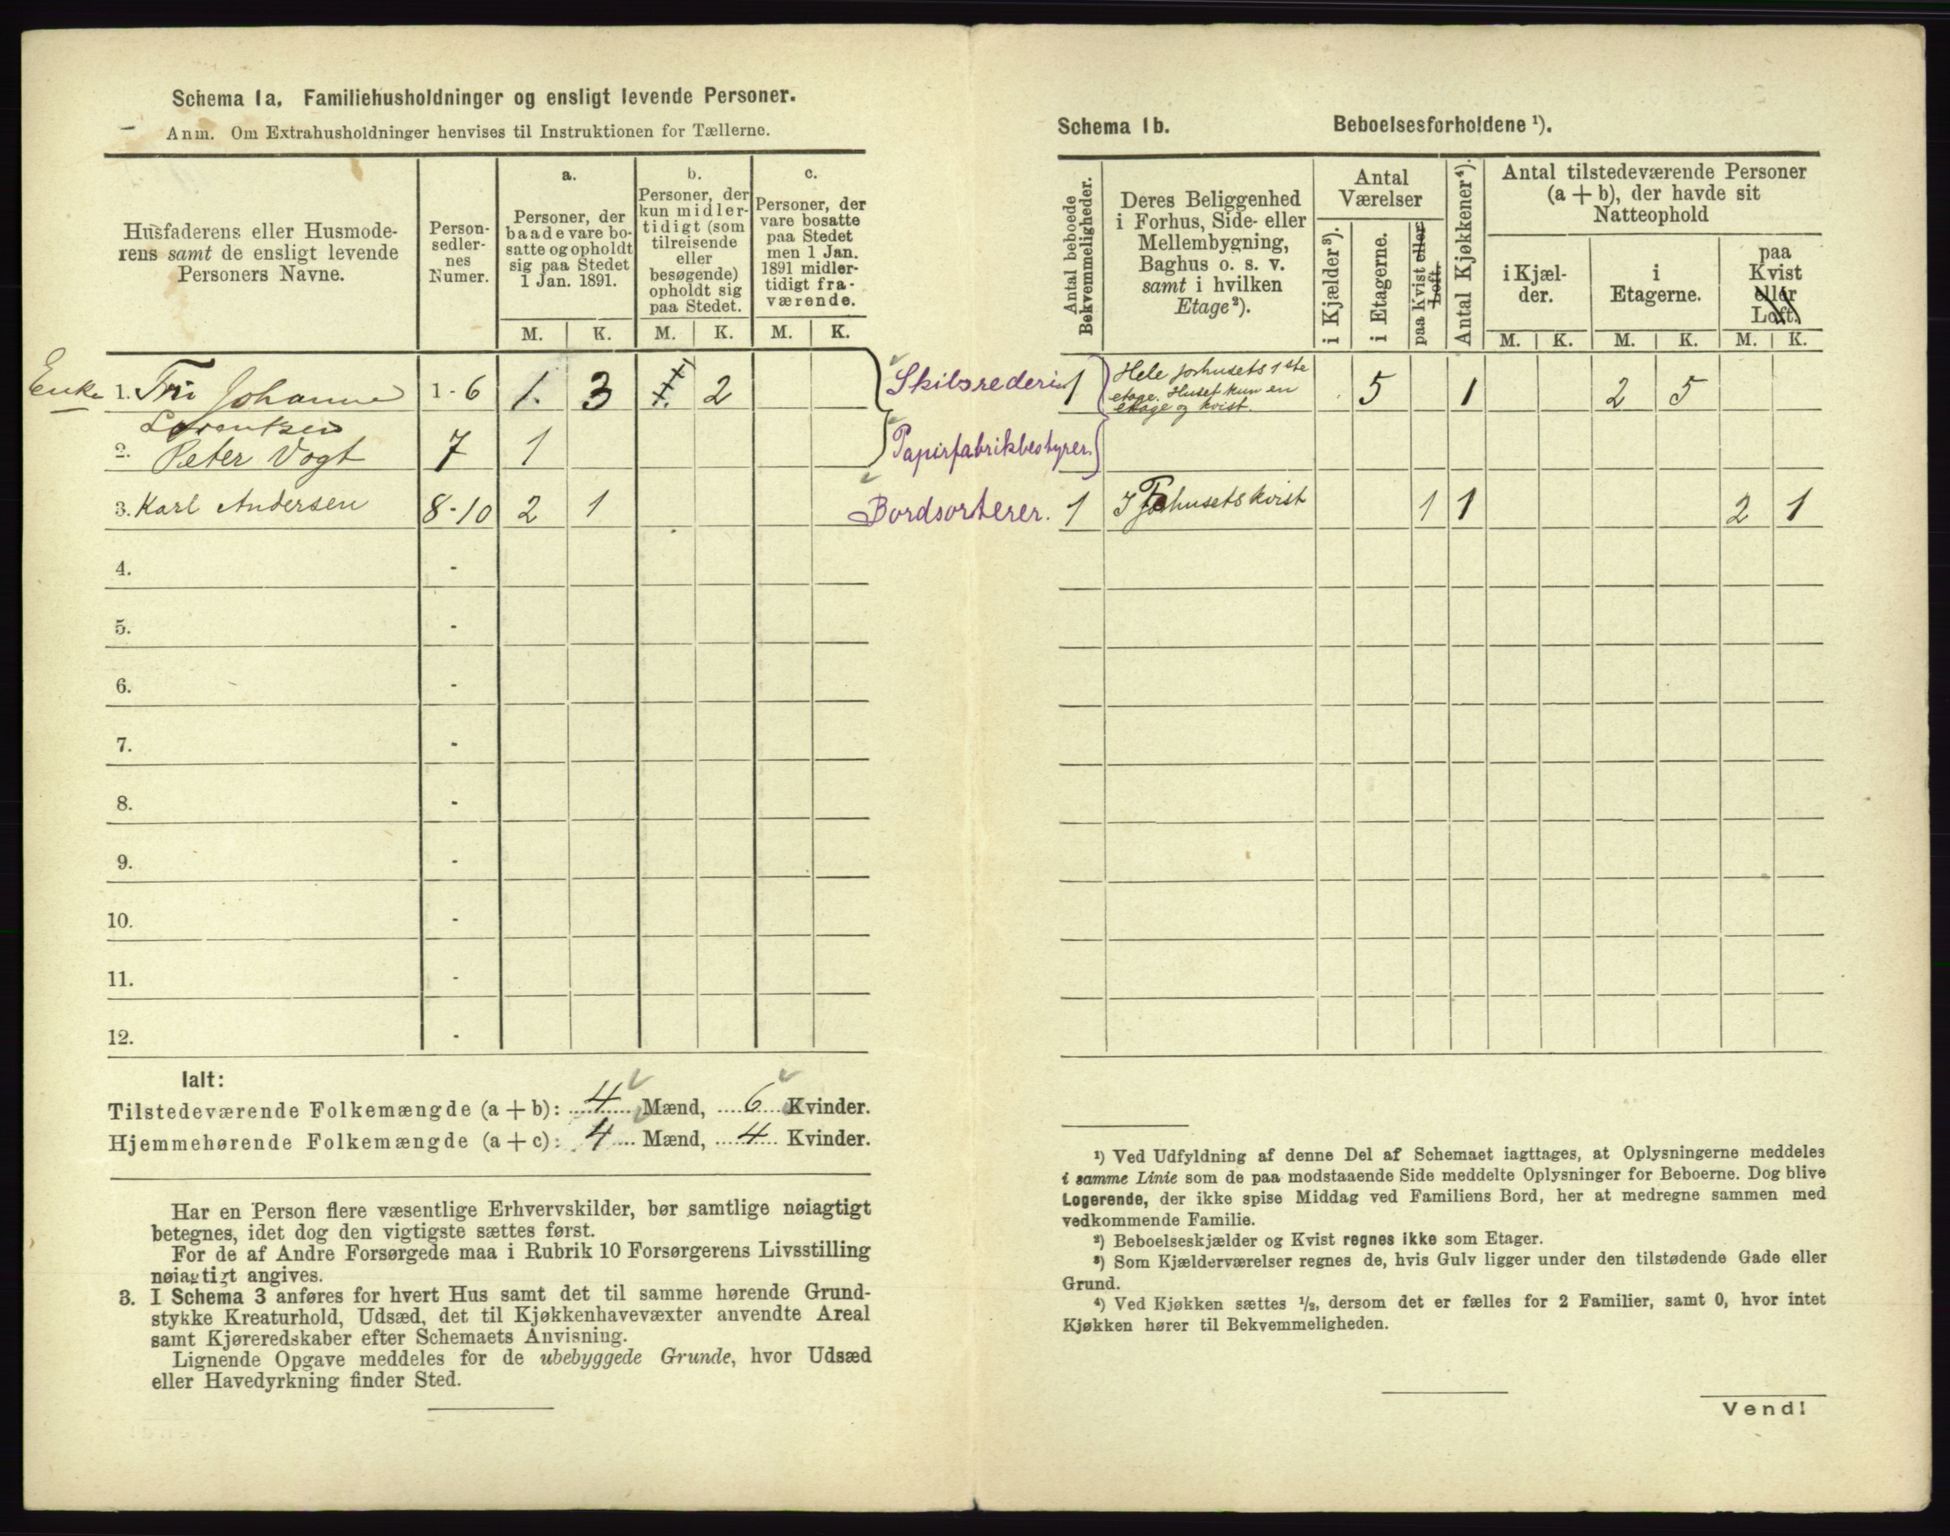 Schema 1a. Familiehusholdninger og ensligt levende Personer.
Anm. Om Extrahusholdninger henvises til Instruktionen for Tællerne.
Husfaderens eller Husmode-
rens samt de ensligt levende
Personers Navne.
Person-
sedler-
nes
Numer.
a.
Personer, der
baade vare bo-
satte og opholdt
sig paa Stedet
1 Jan. 1891.
b.
Personer, der
kun midler-
tidigt (som
tilreisende
eller
besøgende)
opholdt sig
paa Stedet.
c.
Personer, der
vare bosatte
paa Stedet
men 1 Jan.
1891 midler-
tidigt fra-
værende.
M. K. M. K. M. K.
Enke 1. Fru Johanne 1 - 6 1. 3 2 Skibsrederi
Lorentzen
2. Peter Vogt 7 1 Papirfabrikbestyrer.
3. Karl Andersen 8 - 10 2 1 Bordsorterer.
4. -
5. -
6. -
7. -
8. -
9. -
10. -
11. -
12. -
Ialt:
Tilstedeværende Folkemængde (a + b): 4 Mænd, 6 Kvinder.
Hjemmehørende Folkemængde (a + c): 4 Mænd, 4 Kvinder.
Har en Person flere væsentlige Erhvervskilder, bør samtlige nøiagtigt
betegnes, idet dog den vigtigste sættes først.
For de af Andre Forsørgede maa i Rubrik 10 Forsørgerens Livsstilling
nøiagtigt angives.
3. I Schema 3 anføres for hvert Hus samt det til samme hørende Grund-
stykke Kreaturhold, Udsæd, det til Kjøkkenhavevæxter anvendte Areal
samt Kjøreredskaber efter Schemaets Anvisning.
Lignende Opgave meddeles for de ubebyggede Grunde, hvor Udsæd
eller Havedyrkning finder Sted.
Schema 1b. Beboelsesforholdene ¹).
Antal beboede
Bekvemmeligheder.
Deres Beliggenhed
i Forhus, Side- eller
Mellembygning,
Baghus o. s. v.
samt i hvilken
Etage²).
Antal
Værelser
i Kjælder³).
i Etagerne.
paa Kvist eller
Loft.
Antal Kjøkkener⁴).
Antal tilstedeværende Personer
(a + b), der havde sit
Natteophold
i Kjæl-
der.
i
Etagerne.
paa
Kvist
eller
Loft.
M. K. M. K. M. K.
1 Hele forhusets 1ste 5 1 2 5
etage. Huset kun en
etage og kvist.
1 I Forhusets kvist 1 1 2 1
¹) Ved Udfyldning af denne Del af Schemaet iagttages, at Oplysningerne meddeles
i samme Linie som de paa modstaaende Side meddelte Oplysninger for Beboerne. Dog blive
Logerende, der ikke spise Middag ved Familiens Bord, her at medregne sammen med
vedkommende Familie.
²) Beboelseskjælder og Kvist regnes ikke som Etager.
³) Som Kjælderværelser regnes de, hvis Gulv ligger under den tilstødende Gade eller
Grund.
⁴) Ved Kjøkken sættes ½, dersom det er fælles for 2 Familier, samt 0, hvor intet
Kjøkken hører til Bekvemmeligheden.
Vend!